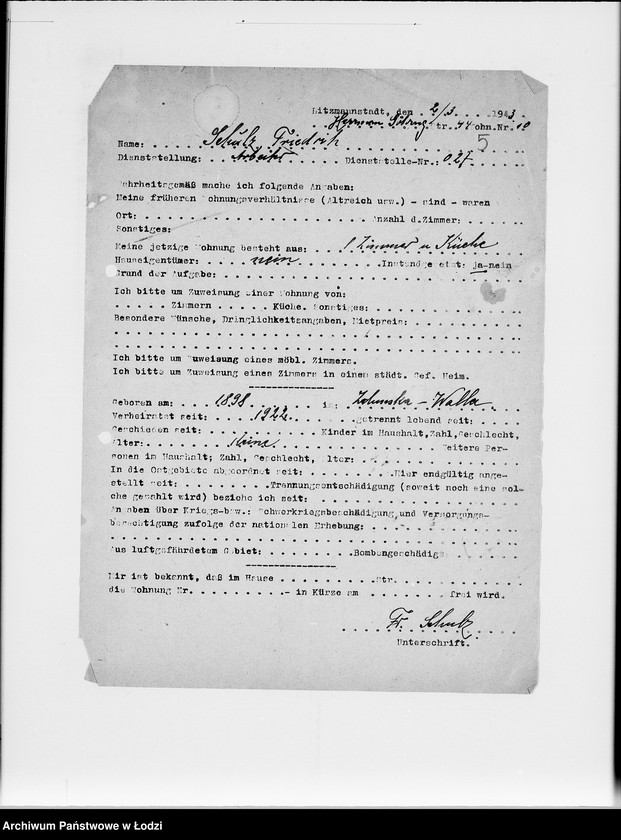 Litzmannstadt, den 2/3. . . 1943. .
Hermann Göring str. 44 Wohn.Nr. 18
5
Name: . . . Schulz Friedrich . . . .
Dienststellung: . . Arbeiter . . . Dienststelle-Nr.: 027. . . .
Wahrheitsgemäß mache ich folgende Angaben:
Meine früheren Wohnungsverhältnisse (Altreich usw.) - sind - waren
Ort: . . . . . . . . . . . . . . . . . . Anzahl d.Zimmer: . . . . .
Sonstiges:
Meine jetzige Wohnung besteht aus: . . 1 Zimmer u Küche
Hauseigentümer: . . . nein . . . . . . .Instandgesetzt: ja-nein
Grund der Aufgabe: . . . . . . . . . . . . . . . . . . . . . . .
Ich bitte um Zuweisung einer Wohnung von:
. . . . . Zimmern . . . . . Küche. Sonstiges: . . . . . . . . . .
Besondere Wünsche, Dringlichkeitsangaben, Mietpreis: . . . . . . .
. . . . . . . . . . . . . . . . . . . . . . . . . . . . . . . . .
. . . . . . . . . . . . . . . . . . . . . . . . . . . . . . . . .
Ich bitte um Zuweisung eines möbl. Zimmers.
Ich bitte um Zuweisung eines Zimmers in einem städt. Gef. Heim.
Geboren am: . . . 1898 . . . . . . in: . . . - Wolla . .
Verheiratet seit: . . . 1922 . . . . . . getrennt lebend seit: . . .
Geschieden seit: . . . . . . . . . . Kinder im Haushalt,Zahl,Geschlecht,
Alter:. . . . . . . keine . . . . . . . . . . . . . Weitere Per-
sonen im Haushalt; Zahl, Geschlecht, Alter: . . . . . . . . . . .
In die Ostgebiete abgeordnet seit: . . . . . . . .Hier endgültig ange-
stellt seit: . . . . . . . .Trennungsentschädigung (soweit noch eine sol-
che gezahlt wird) beziehe ich seit: . . . . . . . . . . . . . . .
Angaben über Kriegs-bzw.: Schwerkriegsbeschädigung,und Versorgungs-
berechtigung zufolge der nationalen Erhebung: . . . . . . . . . . .
. . . . . . . . . . . . . . . . . . . . . . . . . . . . . . . . .
Aus luftgefährdetem Gebiet: . . . . . . . . .Bombengeschädigt . . . . .
Mir ist bekannt, daß im Hause . . . . . . . . . .str. . . . . . . . .
die Wohnung Nr. . . . . . . . . .- in Kürze am . . . . . . . . frei wird.
. . . . . Fr. Schulz
Unterschrift.
Archiwum Państwowe w Łodzi